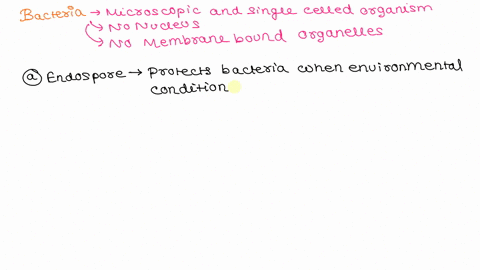 Bacteria → Microscopic and single celled organism
↳ No Nucleus
↳ No Membrane bound organelles
ⓐ Endospore → Protects bacteria when environmental
condition